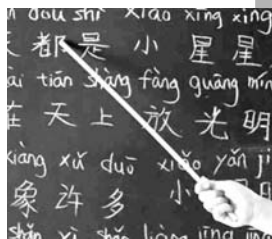 dōu shì xiǎo xīng xīng
都 是 小 星 星
ài tiān shàng fàng guāng mín
在 天 上 放 光 明
xiàng xǔ duō xiǎo yǎn j
象 许 多 小
shǎn yì shǎn liàng jīng jīng